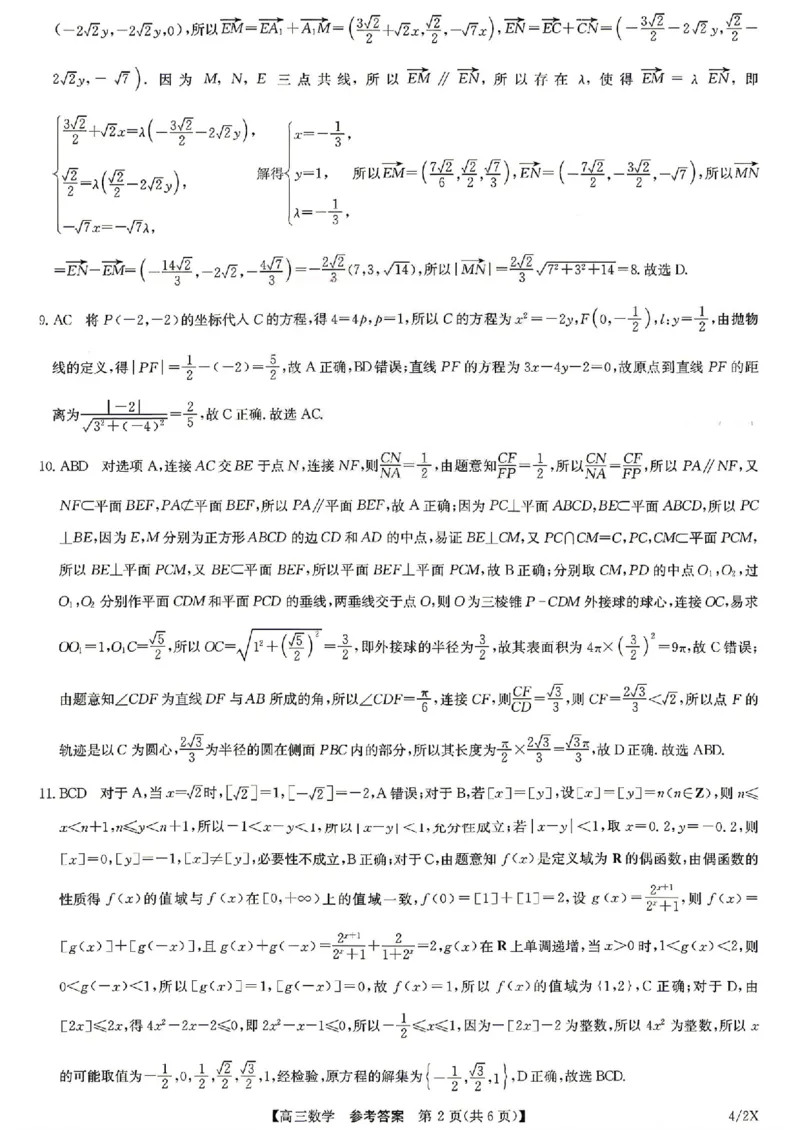 (-2√2y,-2√2y,0),所以EM=EA₁+A₁M=(3√2/2+√2x,√2/2,-√7x),EN=EC+CN=(-3√2/2-2√2y,√2/2-
2√2y,-√7). 因为 M, N, E 三点共线, 所以 EM∥EN, 所以存在 λ, 使得 EM=λEN, 即
{3√2/2+√2x=λ(-3√2/2-2√2y), √2/2=λ(√2/2-2√2y), -√7x=-√7λ, 解得{x=-1/3, y=1, λ=-1/3, 所以EM=(7√2/6,√2/2,√7/3),EN=(-7√2/2,-3√2/2,-√7),所以MN
=EN-EM=(-14√2/3,-2√2,-4√7/3)=-2√2/3(7,3,√14),所以|MN|=2√2/3√7²+3²+14=8.故选D.
9. AC 将 P(-2,-2)的坐标代人 C 的方程,得 4=4p,p=1,所以 C 的方程为 x²=-2y,F(0,-1/2),l:y=1/2,由抛物
线的定义,得|PF|=1/2-(-2)=5/2,故 A 正确,BD错误;直线 PF 的方程为 3x-4y-2=0,故原点到直线 PF 的距
离为|-2|/√3²+(-4)²=2/5,故 C 正确.故选 AC.
10. ABD 对选项 A,连接 AC 交 BE 于点 N,连接 NF,则CN/NA=1/2,由题意知CF/FP=1/2,所以CN/NA=CF/FP,所以 PA∥NF,又
NF⊂平面 BEF,PA⊄平面 BEF,所以 PA∥平面 BEF,故 A 正确;因为 PC⊥平面 ABCD,BE⊂平面 ABCD,所以 PC
⊥BE,因为 E,M 分别为正方形 ABCD 的边 CD 和 AD 的中点,易证 BE⊥CM,又 PC∩CM=C,PC,CM⊂平面 PCM,
所以 BE⊥平面 PCM,又 BE⊂平面 BEF,所以平面 BEF⊥平面 PCM,故 B 正确;分别取 CM,PD 的中点 O₁,O₂,过
O₁,O₂ 分别作平面 CDM 和平面 PCD 的垂线,两垂线交于点 O,则 O 为三棱锥 P-CDM 外接球的球心,连接 OC,易求
OO₁=1,O₁C=√5/2,所以 OC=√1²+(√5/2)²=3/2,即外接球的半径为3/2,故其表面积为 4π×(3/2)²=9π,故 C 错误;
由题意知∠CDF 为直线 DF 与 AB 所成的角,所以∠CDF=π/6,连接 CF,则CF/CD=√3/3,则 CF=2√3/3<√2,所以点 F 的
轨迹是以 C 为圆心,2√3/3为半径的圆在侧面 PBC 内的部分,所以其长度为π/2×2√3/3=√3π/3,故 D 正确.故选 ABD.
11. BCD 对于 A,当 x=√2时,[√2]=1,[-√2]=-2,A 错误;对于 B,若[x]=[y],设[x]=[y]=n(n∈Z),则 n≤
x<n+1,n≤y<n+1,所以-1<x-y<1,所以|x-y|<1,充分性成立;若|x-y|<1,取 x=0.2,y=-0.2,则
[x]=0,[y]=-1,[x]≠[y],必要性不成立,B 正确;对于 C,由题意知 f(x)是定义域为 R 的偶函数,由偶函数的
性质得 f(x)的值域与 f(x)在[0,+∞)上的值域一致,f(0)=[1]+[1]=2,设 g(x)=2ˣ⁺¹/2ˣ+1,则 f(x)=
[g(x)]+[g(-x)],且 g(x)+g(-x)=2ˣ⁺¹/2ˣ+1+2/1+2ˣ=2,g(x)在 R 上单调递增,当 x>0 时,1<g(x)<2,则
0<g(-x)<1,所以[g(x)]=1,[g(-x)]=0,故 f(x)=1,所以 f(x)的值域为{1,2},C 正确;对于 D,由
[2x]≤2x,得 4x²-2x-2≤0,即 2x²-x-1≤0,所以-1/2≤x≤1,因为-[2x]-2 为整数,所以 4x² 为整数,所以 x
的可能取值为-1/2,0,1/2,√2/2,√3/2,1,经检验,原方程的解集为{-1/2,√3/2,1},D 正确,故选 BCD.
【高三数学 参考答案 第 2 页(共 6 页)】 4/2X